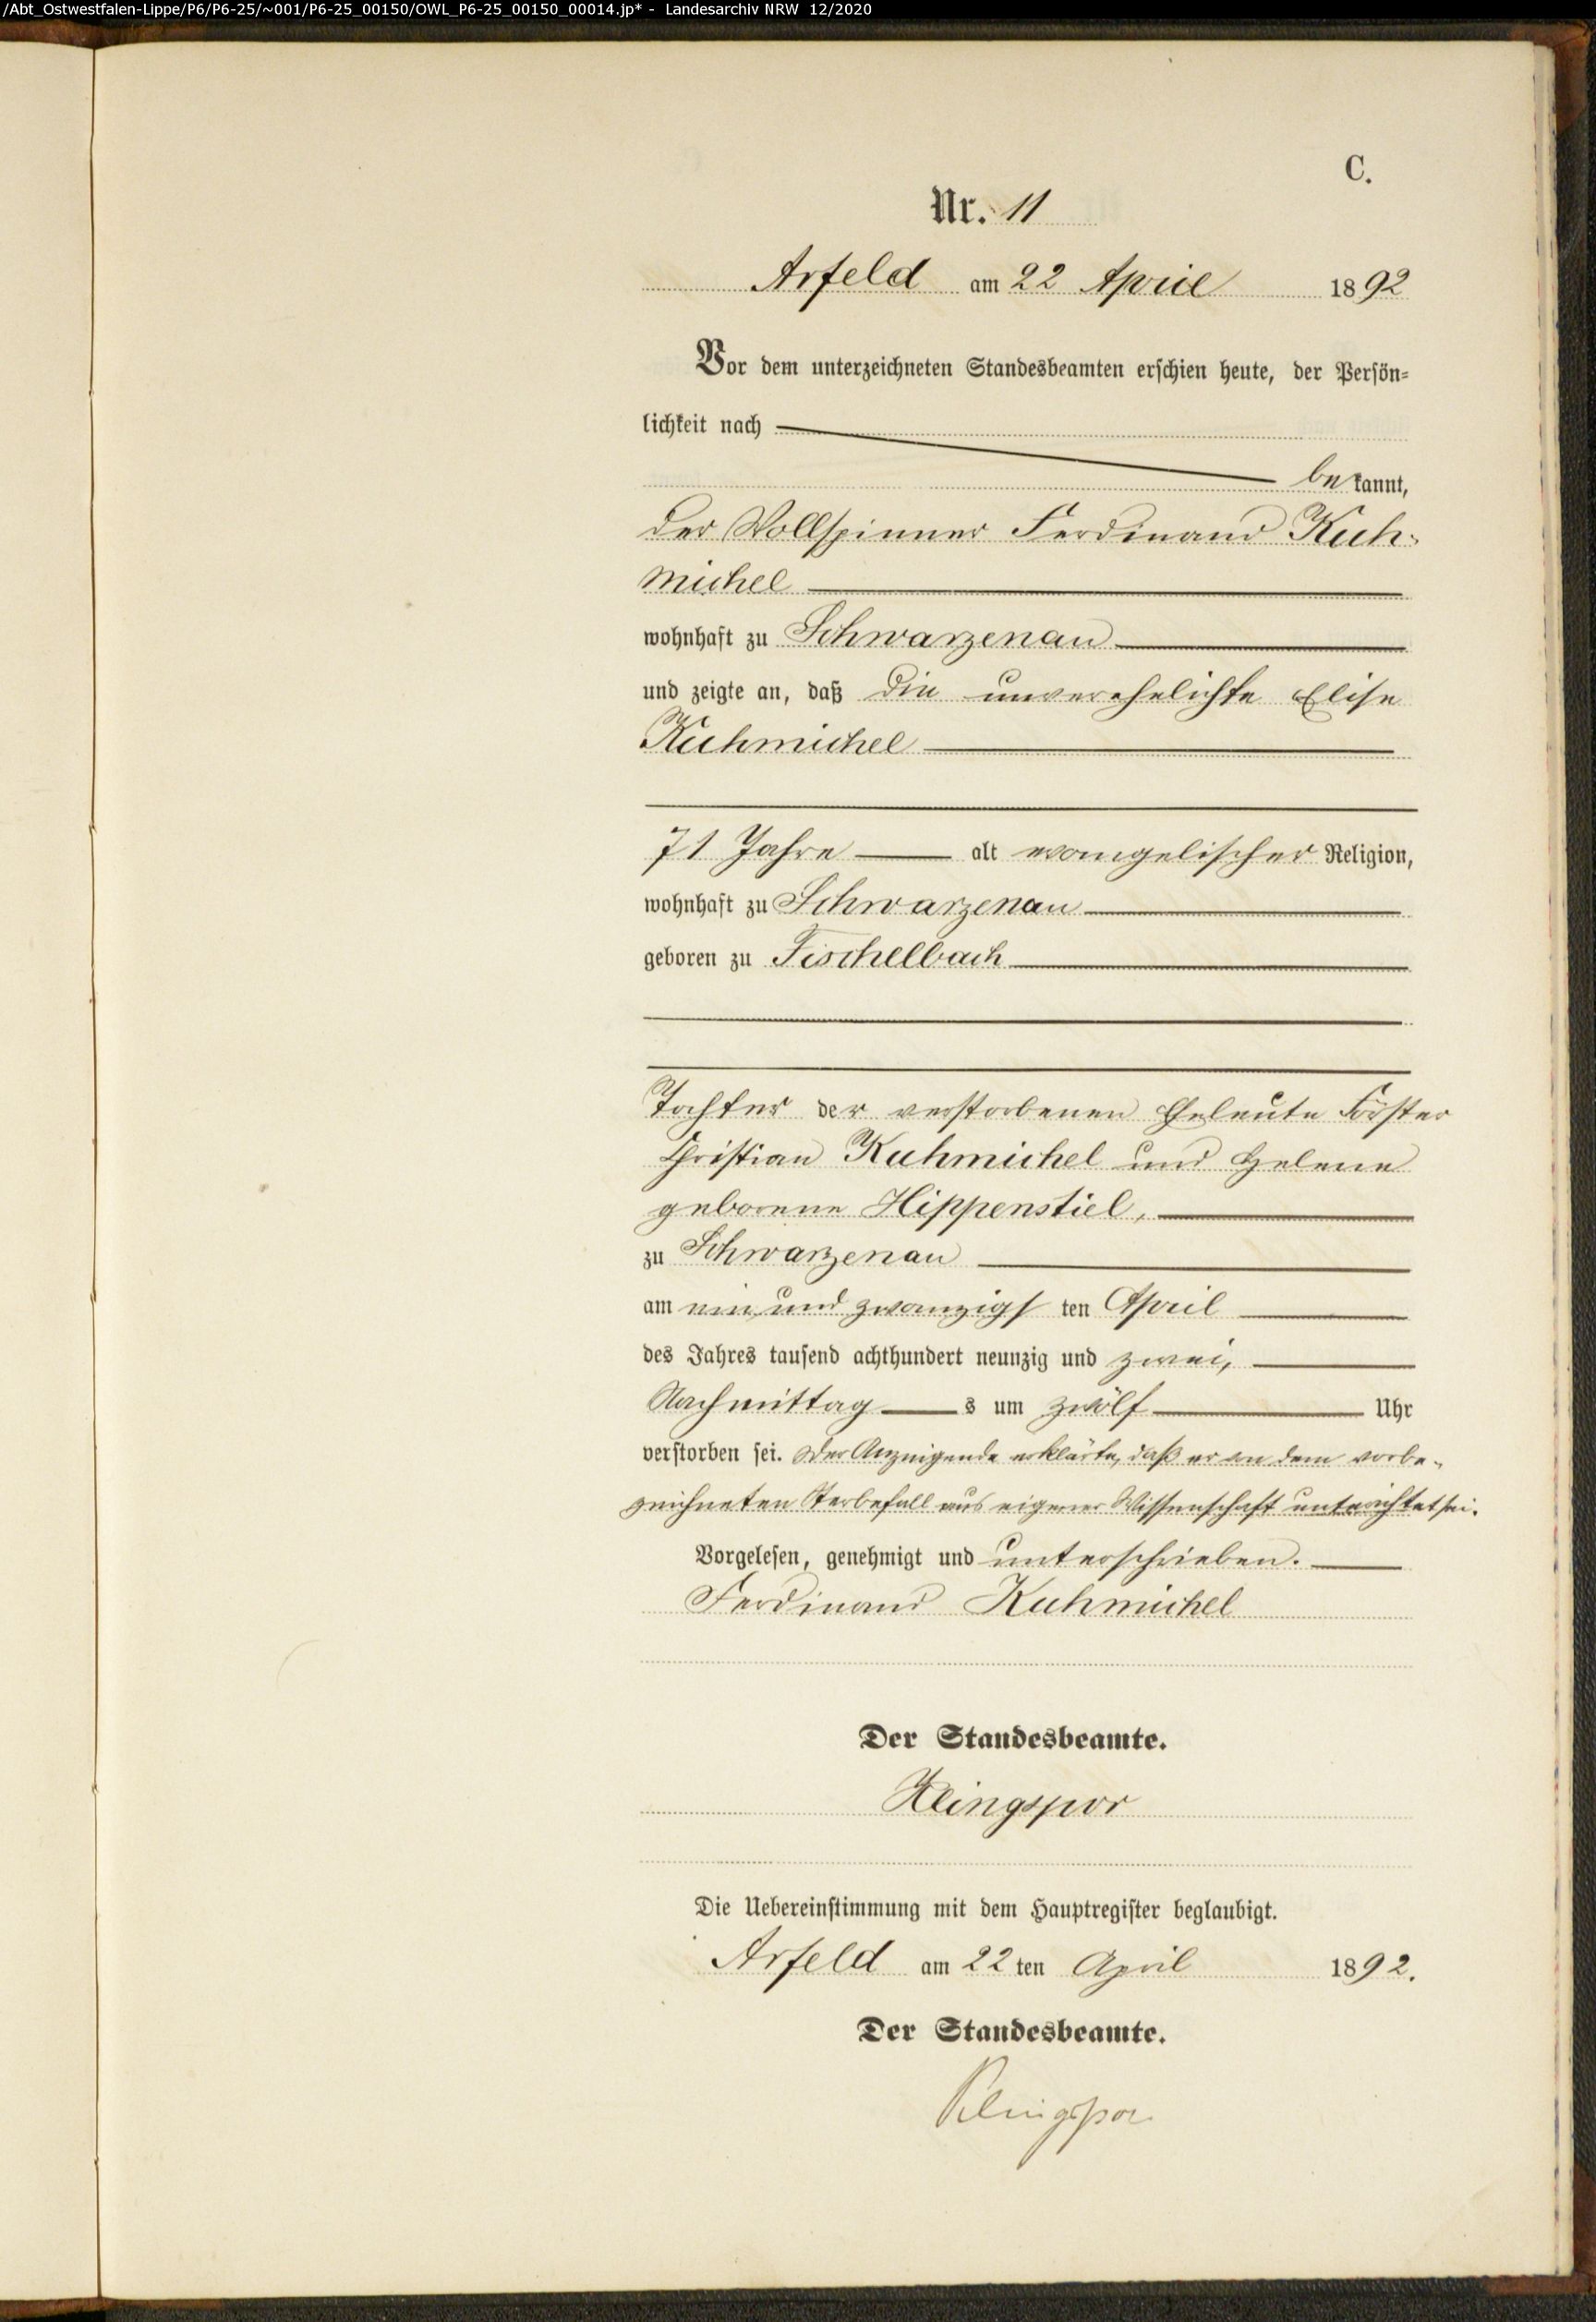 /Abt_Ostwestfalen-Lippe/P6/P6-25/~001/P6-25_00150/OWL_P6-25_00150_00014.jp* - Landesarchiv NRW 12/2020
C.
Nr. 11
Arfeld am 22 April 1892
Vor dem unterzeichneten Standesbeamten erschien heute, der Persön-
lichkeit nach
bekannt,
der Wollspinner Ferdinand Kuh-
michel
wohnhaft zu Schwarzenau
und zeigte an, daß die unverehelichte Elise
Kuhmichel
71 Jahre alt evangelischer Religion,
wohnhaft zu Schwarzenau
geboren zu Fischelbach
Tochter der verstorbenen Eheleute Förster
Christian Kuhmichel und Helene
geborene Hippenstiel,
zu Schwarzenau
am ein und zwanzigsten April
des Jahres tausend achthundert neunzig und zwei,
Nachmittags um zwölf Uhr
verstorben sei. Der Anzeigende erklärte, daß er von dem vorbe-
zeichneten Sterbefall aus eigener Wissenschaft unterrichtet sei.
Vorgelesen, genehmigt und unterschrieben.
Ferdinand Kuhmichel
Der Standesbeamte.
Klingspor
Die Uebereinstimmung mit dem Hauptregister beglaubigt.
Arfeld am 22ten April 1892.
Der Standesbeamte.
Klingspor